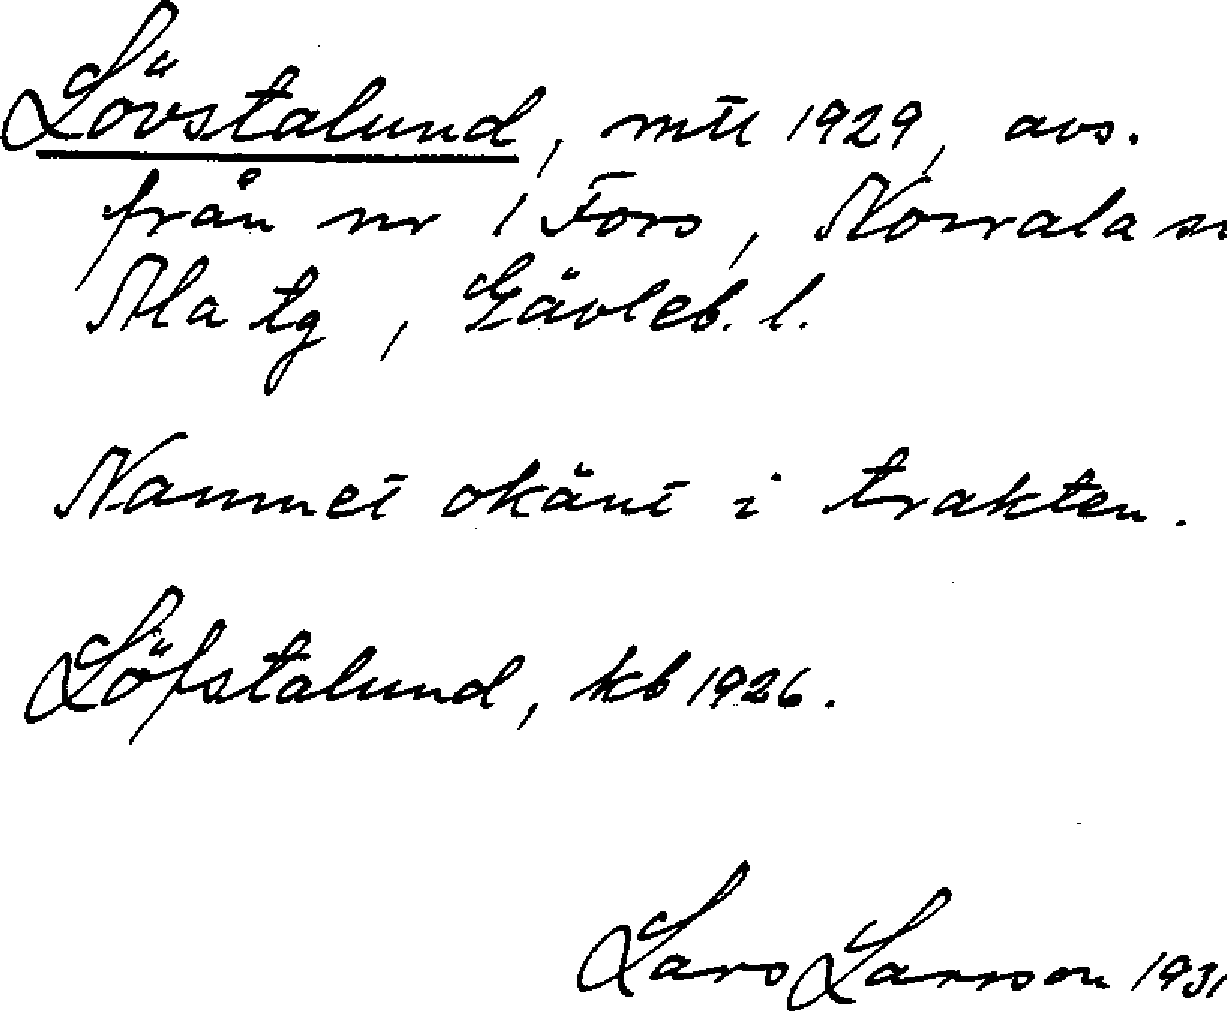 Lövstalund, mtl 1929, avs.
från nr 1 Fors, Norrala sn
Ala tg, Gävleb. l.
Namnet okänt i trakten.
Löfstalund, kb 1926.
Lars Larsson 1931